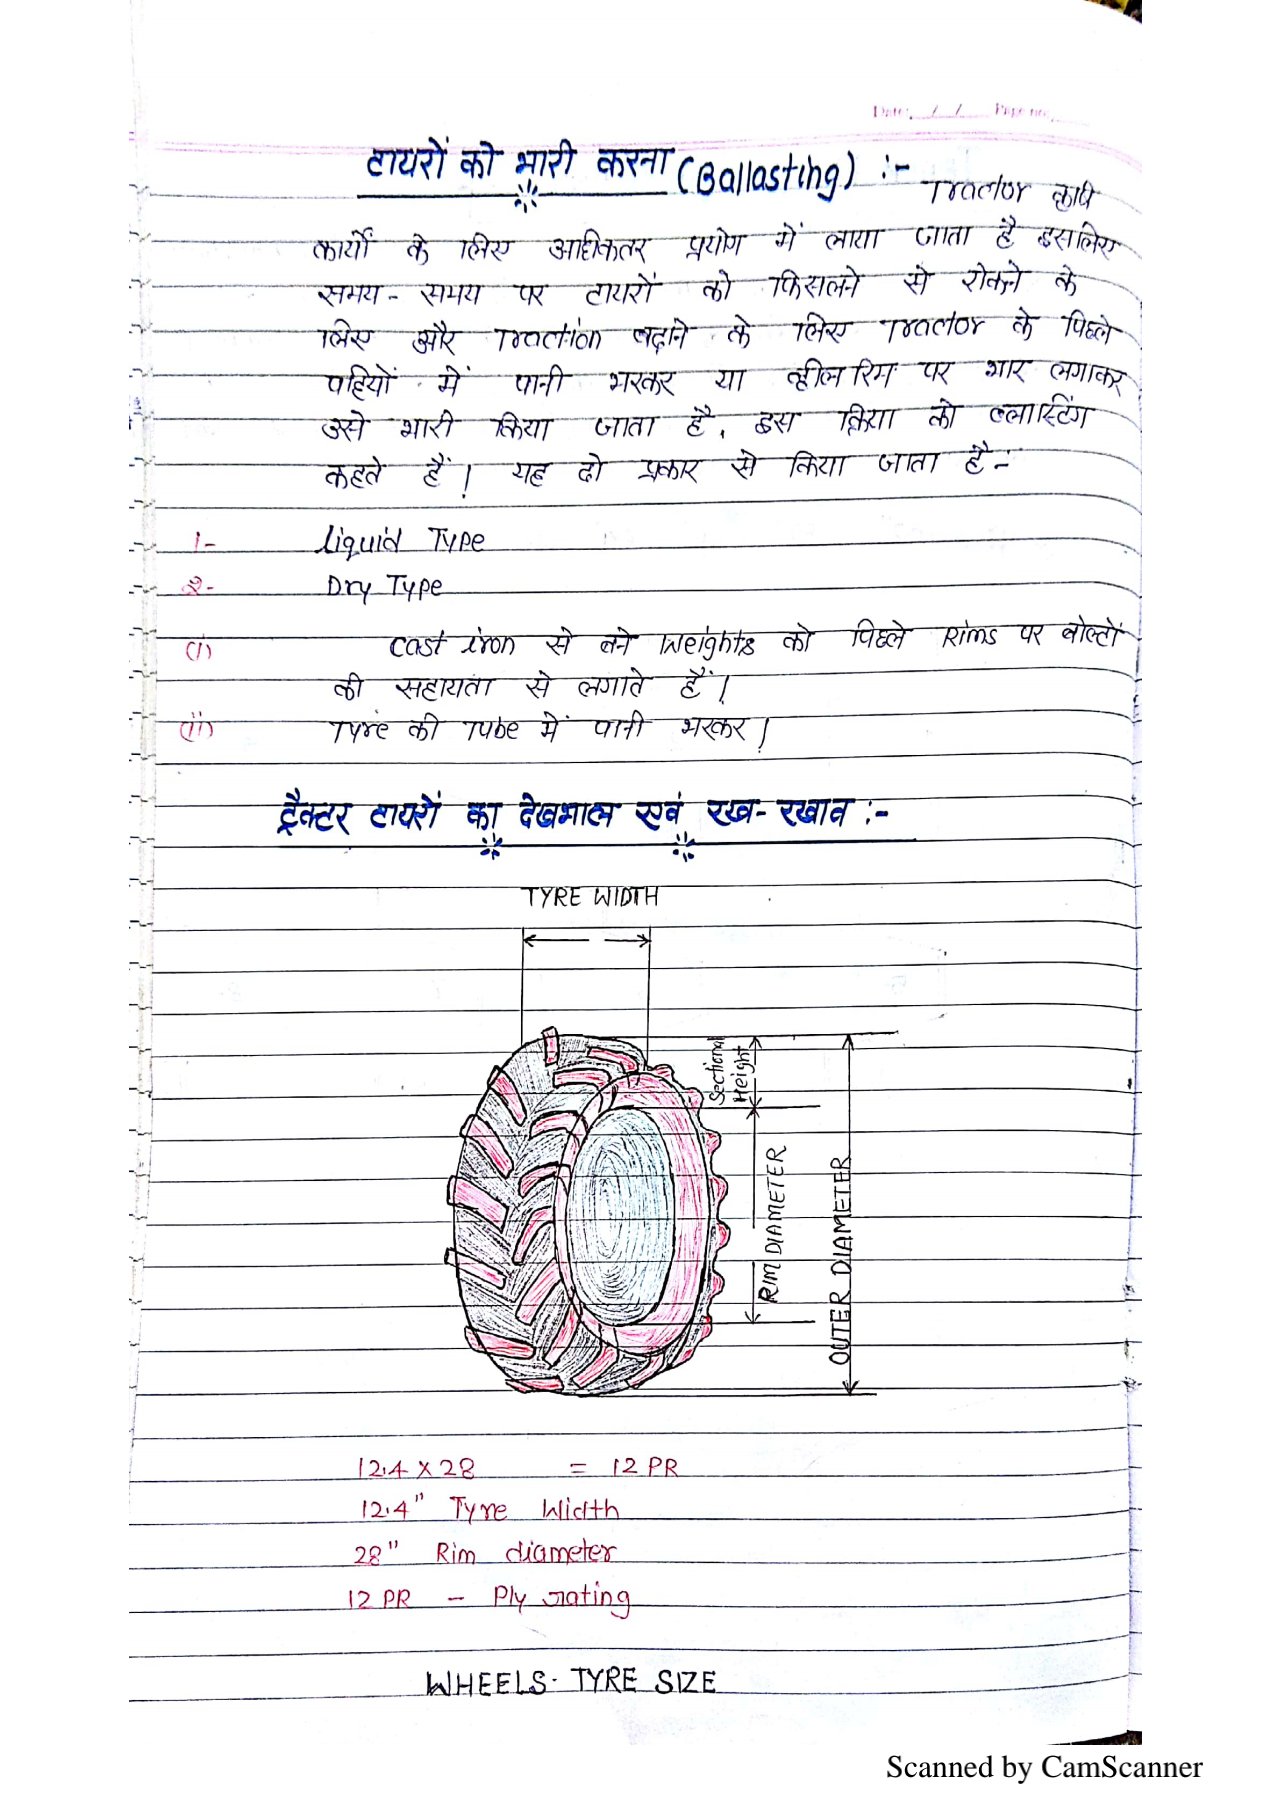 Date: / / Page no.
टायरों को भारी करना (Ballasting) :-
Tractor कृषि
कार्यों के लिए अधिकतर प्रयोग में लाया जाता है इसलिए
समय- समय पर टायरों को फिसलने से रोकने के
लिए और Traction बढ़ाने के लिए Tractor के पिछले
पहियों में पानी भरकर या व्हील रिम पर भार लगाकर
उसे भारी किया जाता है, इस क्रिया को ब्लास्टिंग
कहते हैं। यह दो प्रकार से किया जाता है:-
1- liquid Type
2- Dry Type
(i) cast iron से बने Weights को पिछले Rims पर बोल्टों
की सहायता से लगाते हैं।
(ii) Tyre की Tube में पानी भरकर।
ट्रैक्टर टायरों का देखभाल एवं रख-रखाव :-
TYRE WIDTH
Sectional
Height
RIM DIAMETER
OUTER DIAMETER
12.4 X 28 = 12 PR
12.4" Tyre Width
28" Rim diameter
12 PR - Ply rating
WHEELS. TYRE SIZE
Scanned by CamScanner